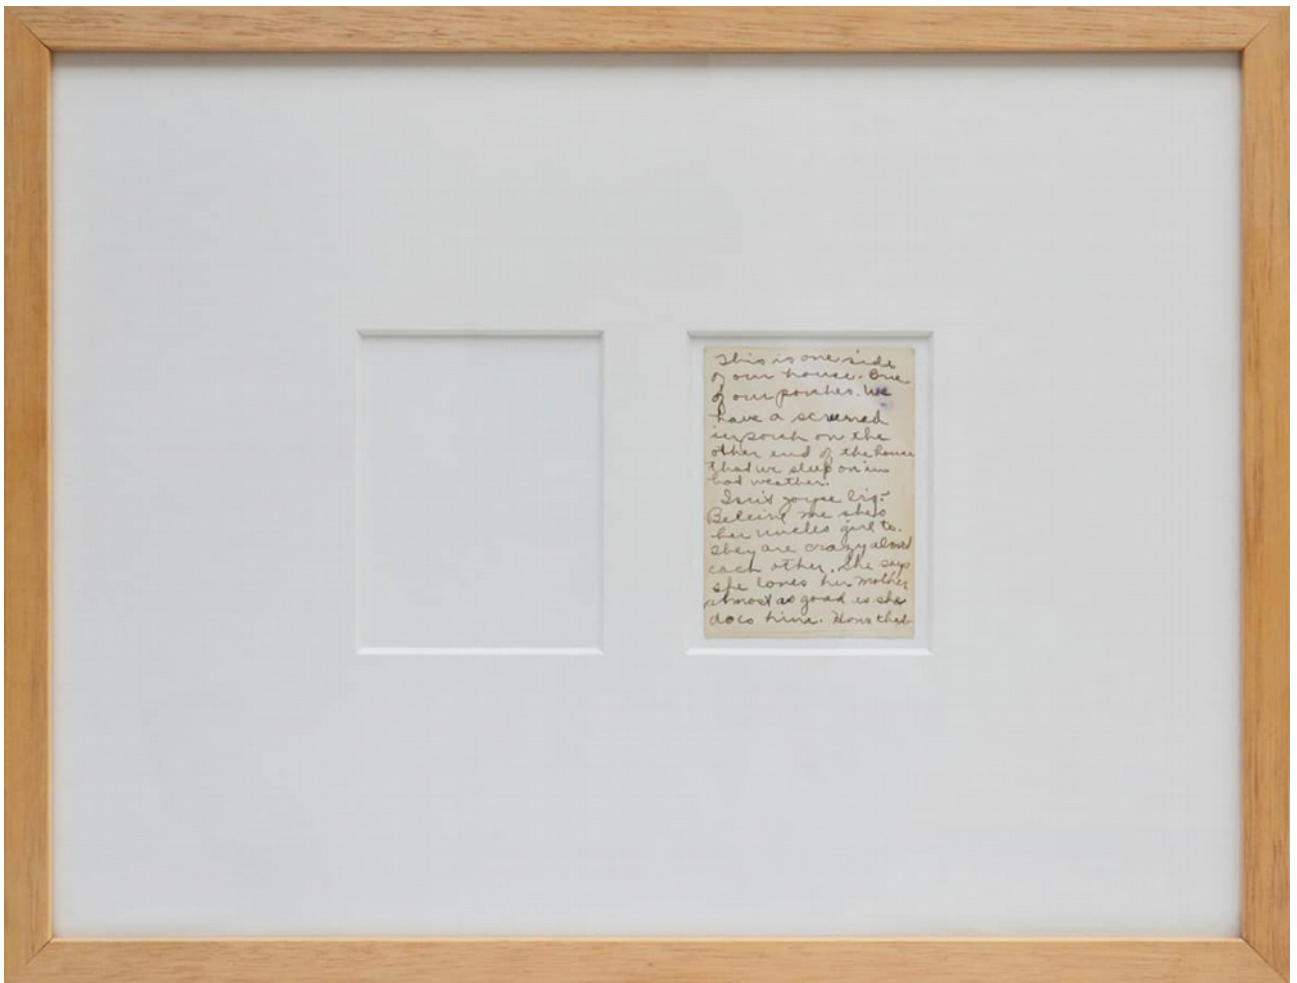 This is one side
of our house. One
of our porches. We
have a screened
in porch on the
other end of the house
that we sleep on in
bad weather.
Isn't big.
Beleive me she's
her uncles girl to.
they are crazy about
each other. She says
she loves her mother
almost as good as she
does him. Hows that